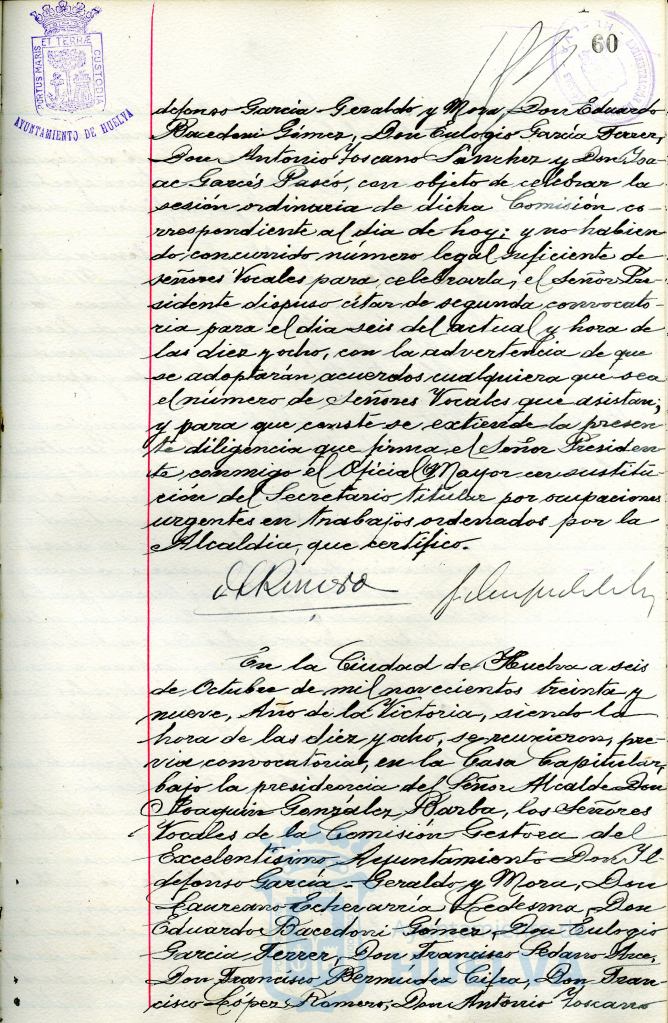 PORTUS MARIS ET TERRÆ CUSTODIA
AYUNTAMIENTO DE HUELVA
60
defonso Garcia-Geraldo y Mora, Don Eduardo
Bacedoni Gómez, Don Eulogio García Ferrer,
Don Antonio Toscano Sánchez y Don Isa-
ac Garcés Paseo, con objeto de celebrar la
sesión ordinaria de dicha Comisión co-
rrespondiente al dia de hoy; y no habien-
do concurrido número legal suficiente de
señores Vocales para celebrarla, el Señor Pre-
sidente dispuso citar de segunda convocato-
ria para el dia seis del actual y hora de
las diez y ocho, con la advertencia de que
se adoptarán acuerdos cualquiera que sea
el número de Señores Vocales que asistan;
y para que conste se extiende la presen-
te diligencia que firma el Señor Presiden-
te, conmigo el Oficial Mayor en sustitu-
ción del Secretario titular por ocupaciones
urgentes en trabajos ordenados por la
Alcaldia, que certifico.
En la Ciudad de Huelva a seis
de Octubre de mil novecientos treinta y
nueve, Año de la Victoria, siendo la
hora de las diez y ocho, se reunieron, pre-
via convocatoria, en la Casa Capitular,
bajo la presidencia del Señor Alcalde Don
Joaquín González Barba, los Señores
Vocales de la Comisión Gestora del
Excelentísimo Ayuntamiento Don Il-
defonso García-Geraldo y Mora, Don
Laureano Echevarría Ledesma, Don
Eduardo Bacedoni Gómez, Don Eulogio
Garcia Ferrer, Don Francisco Sedano Arce,
Don Francisco Bermudez Cifra, Don Fran-
cisco López Romero, Don Antonio Toscano
HUELVA